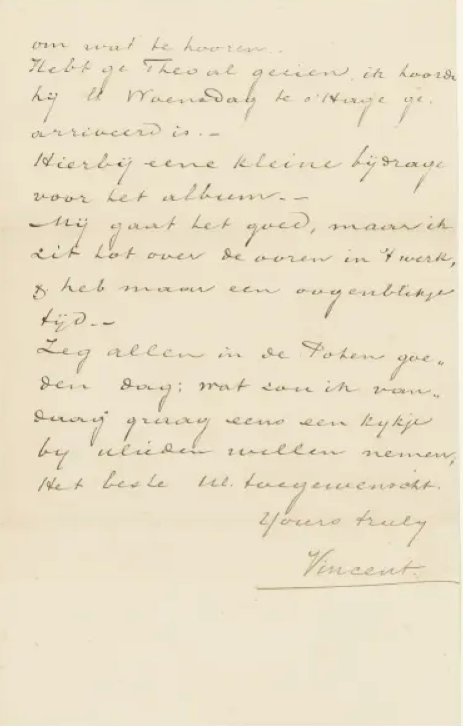 om wat te hooren.
Hebt ge Theo al gezien, ik hoorde
hij ll Woensdag te s'Hage ge-
arriveerd is.-
Hierbij eene kleine bijdrage
voor het album.--
Mij gaat het goed, maar ik
zit tot over de ooren in 't werk,
& heb maar een oogenblikje
tijd.--
Zeg allen in de Poten goe-
den dag; wat zou ik van-
daag graag eens een kijkje
bij ulieden willen nemen,
Het beste Ul. toegewenscht.
Yours truly
Vincent.